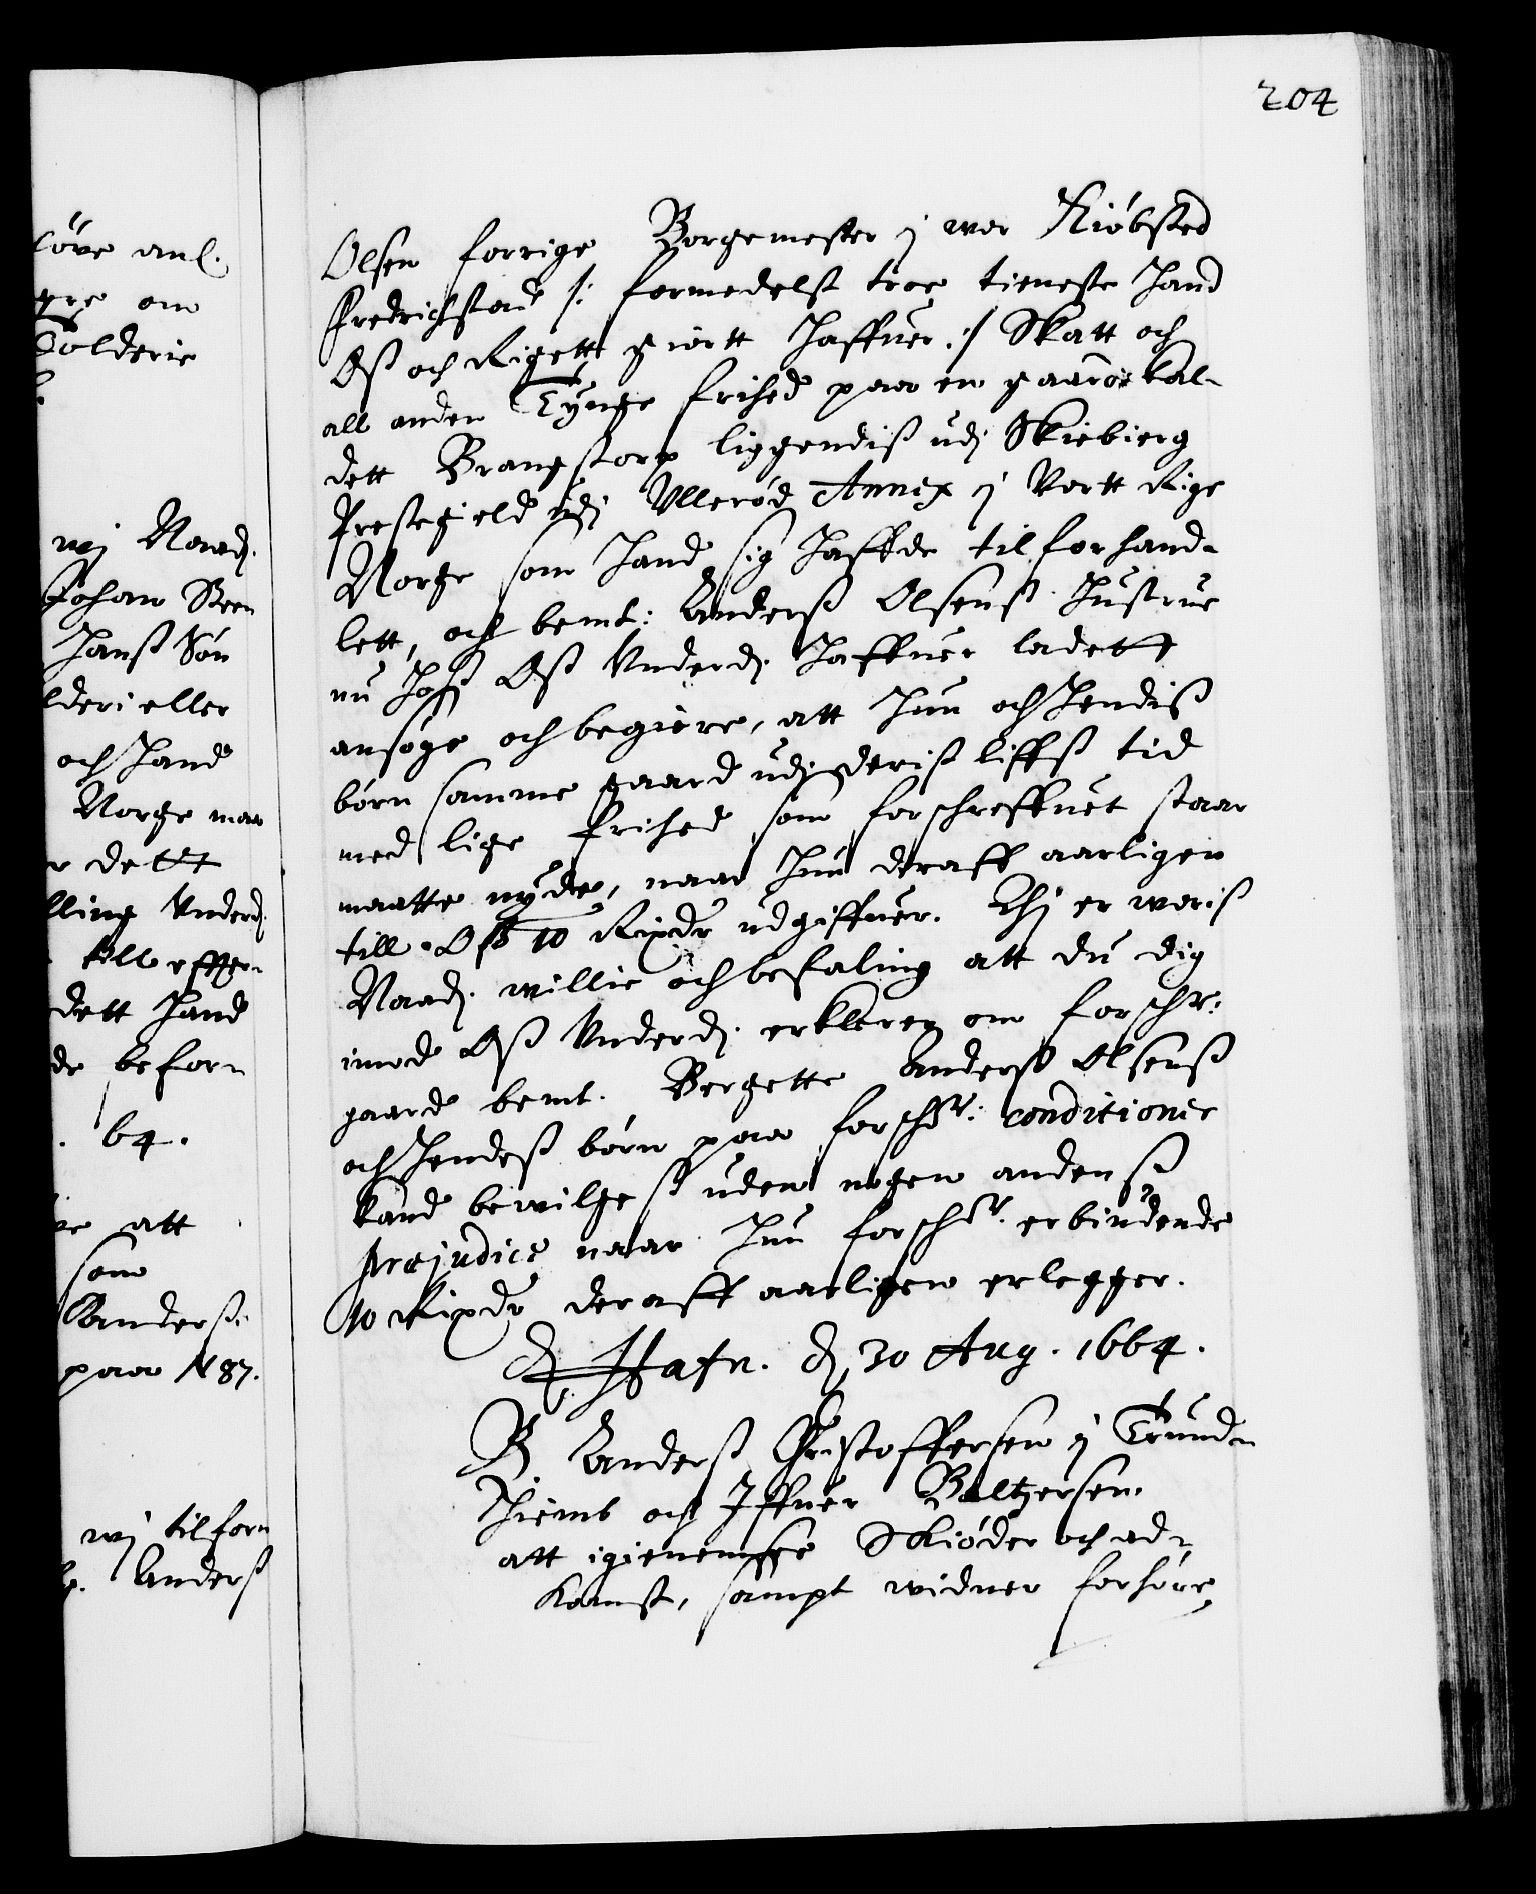 204
Olsen forrige Borgemester i wor Kiöbsted
Fredrichstad /: formedelst troe tieneste hand
Oß och Rigett giort haffuer :/ Skatt och
all anden Tynge frihed paa en gaard kal-
dett Brangstorp liggendiß udj Skiebierg
Prestegield udj Ullerød Annex i Vortt Rige
Norge som hand sig haffde tilforhand-
lett, och bemt: Anderß Olsenß hustrue
nu hoß Oß Underd. haffuer ladett
ansöge och begiere, att hun och hendiß
börn samme gaard udj deriß liffß tid
med lige frihed som forschreffuet staar
maatte nyde, naar hun deraff aarligen
till Oß 10 Rixdr udgiffuer. Thj er woriß
Naad. willie och befaling att du dig
imod Oß Underd. erklerer om forschr:
gaard bemt. Bergette Anderß Olsenß
och hendeß börn paa forschr: conditioner
kand bewilgeß uden nogen andenß
præjudice naar hun forschr. erbindende
10 Rixdr deraff aarligen erlegger.
Hafn. d 30 Aug. 1664.
B Anderß Christoffersen i Trund-
hiemb och Iffuer Baltzersen
att igienemsee Skiöder och ad-
komst, sampt widner forhöre,
löve anl.
om
Solderie
wj Naad.
Johan Steen
Hanß Sön
lderi eller
och hand
Norge maa
dett
lling Underd.
dett hand
de beforn
64.
att
som
Anderß
paa N 87.
wj tilforn
Anderß